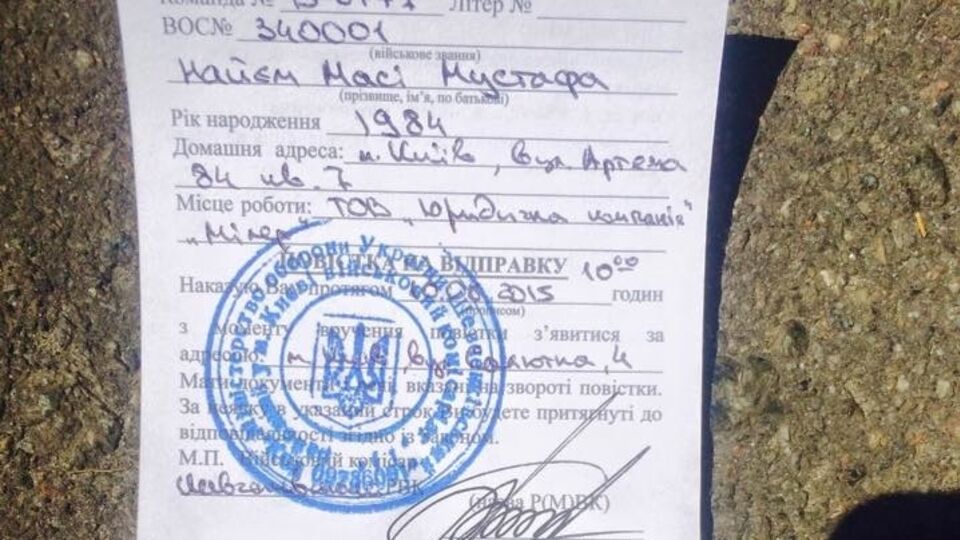 Команда № Літер №
ВОС№ 340001
(військове звання)
Найєм Масі Мустафа
(прізвище, ім'я, по батькові)
Рік народження 1984
Домашня адреса: м. Київ, вул. Артема
84 кв. 7
Місце роботи: ТОВ „Юридична компанія"
„Мілер"
ПОВІСТКА НА ВІДПРАВКУ 10⁰⁰
Наказую Вам протягом 2015 годин
(прописом)
з моменту вручення повістки з'явитися за
адресою: м. Київ, вул. Салютна, 4
Мати документи і речі, вказані на звороті повістки.
За неявку в указаний строк Ви будете притягнуті до
відповідальності згідно із законом.
М.П. Військовий комісар
РВК
(назва Р(М)ВК)